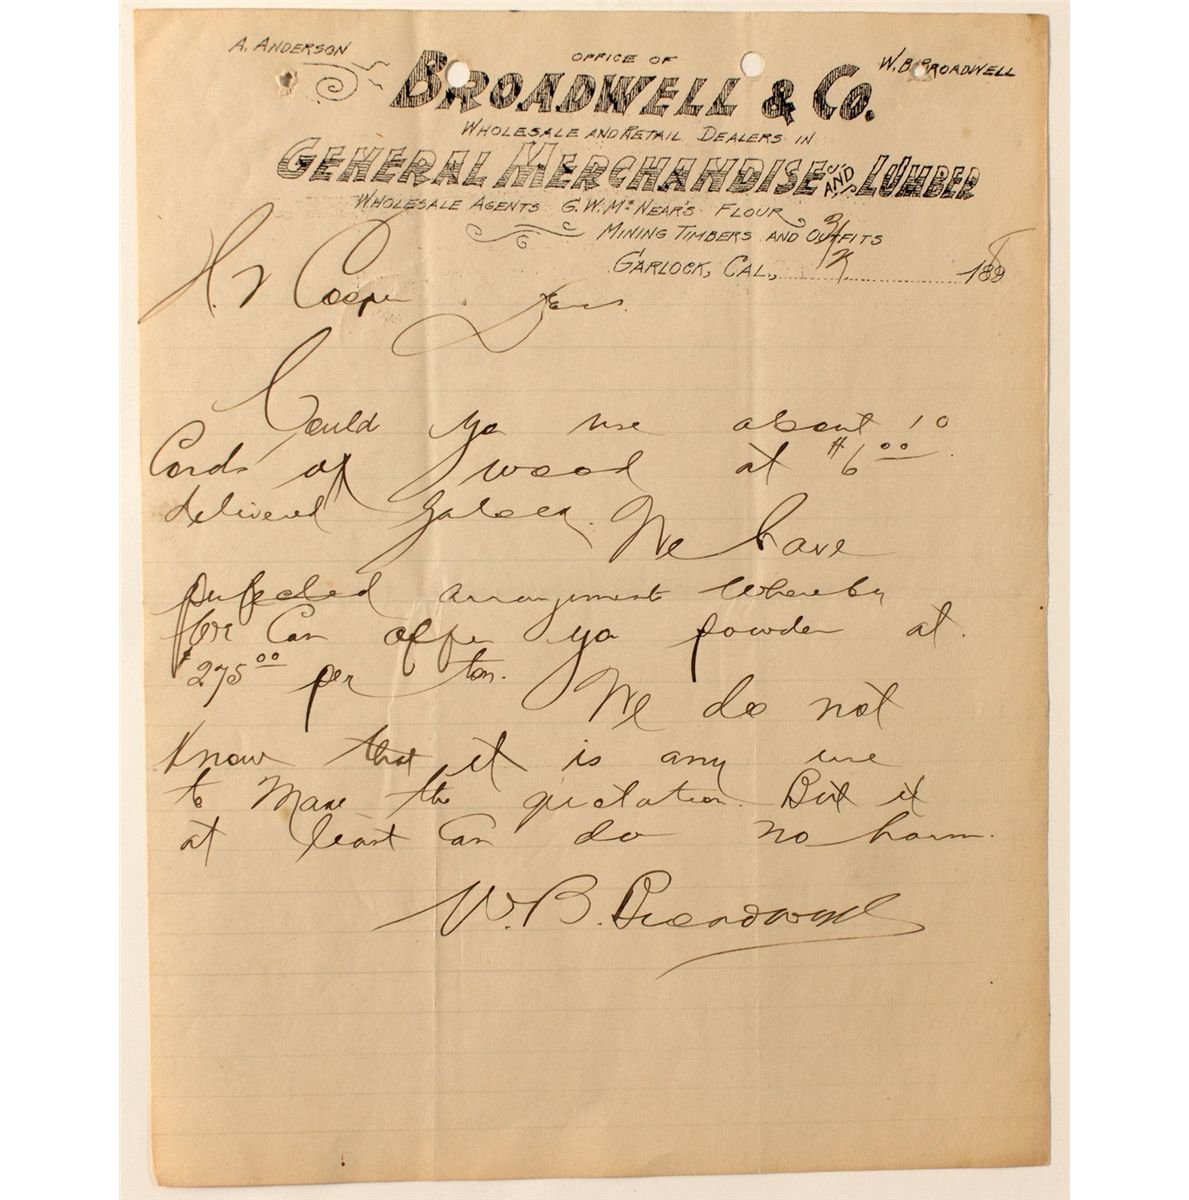 A. ANDERSON
OFFICE OF
W. B. BROADWELL
BROADWELL & CO.
WHOLESALE AND RETAIL DEALERS IN
GENERAL MERCHANDISE AND LUMBER
WHOLESALE AGENTS G. W. Mc NEAR'S FLOUR
MINING TIMBERS AND OUTFITS
GARLOCK, CAL.,
H. Cooper
Could yo use about 10
Cords of wood at $6.00
delivered Garlock. We have
perfected arrangements whereby
we can offer yo powder at
$275.00 per ton. We do not
know that it is any use
to Make the quotation. But it
at least Can do no harm.
W. B. Broadwell